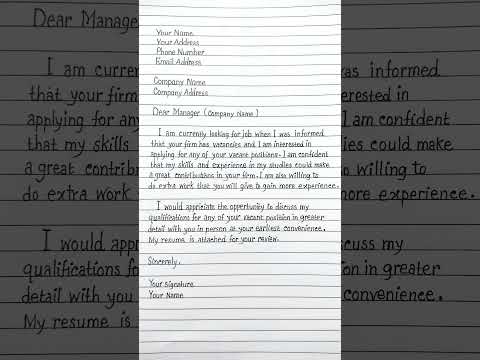 Your Name
Your Address
Phone Number
Email Address
Company Name
Company Address
Dear Manager (Company Name)
I am currently looking for job when I was informed
that your firm has vacancies and I am interested in
applying for any of your vacant positions. I am confident
that my skills and experience in my studies could make
a great contributions in your firm. I am also willing to
do extra work that you will give to gain more experience.
I would appriciate the opportunity to discuss my
qualifications for any of your vacant position in greater
detail with you in person at your earliest convenience.
My resume is attached for your review.
Sincerely,
Your signature
Your Name